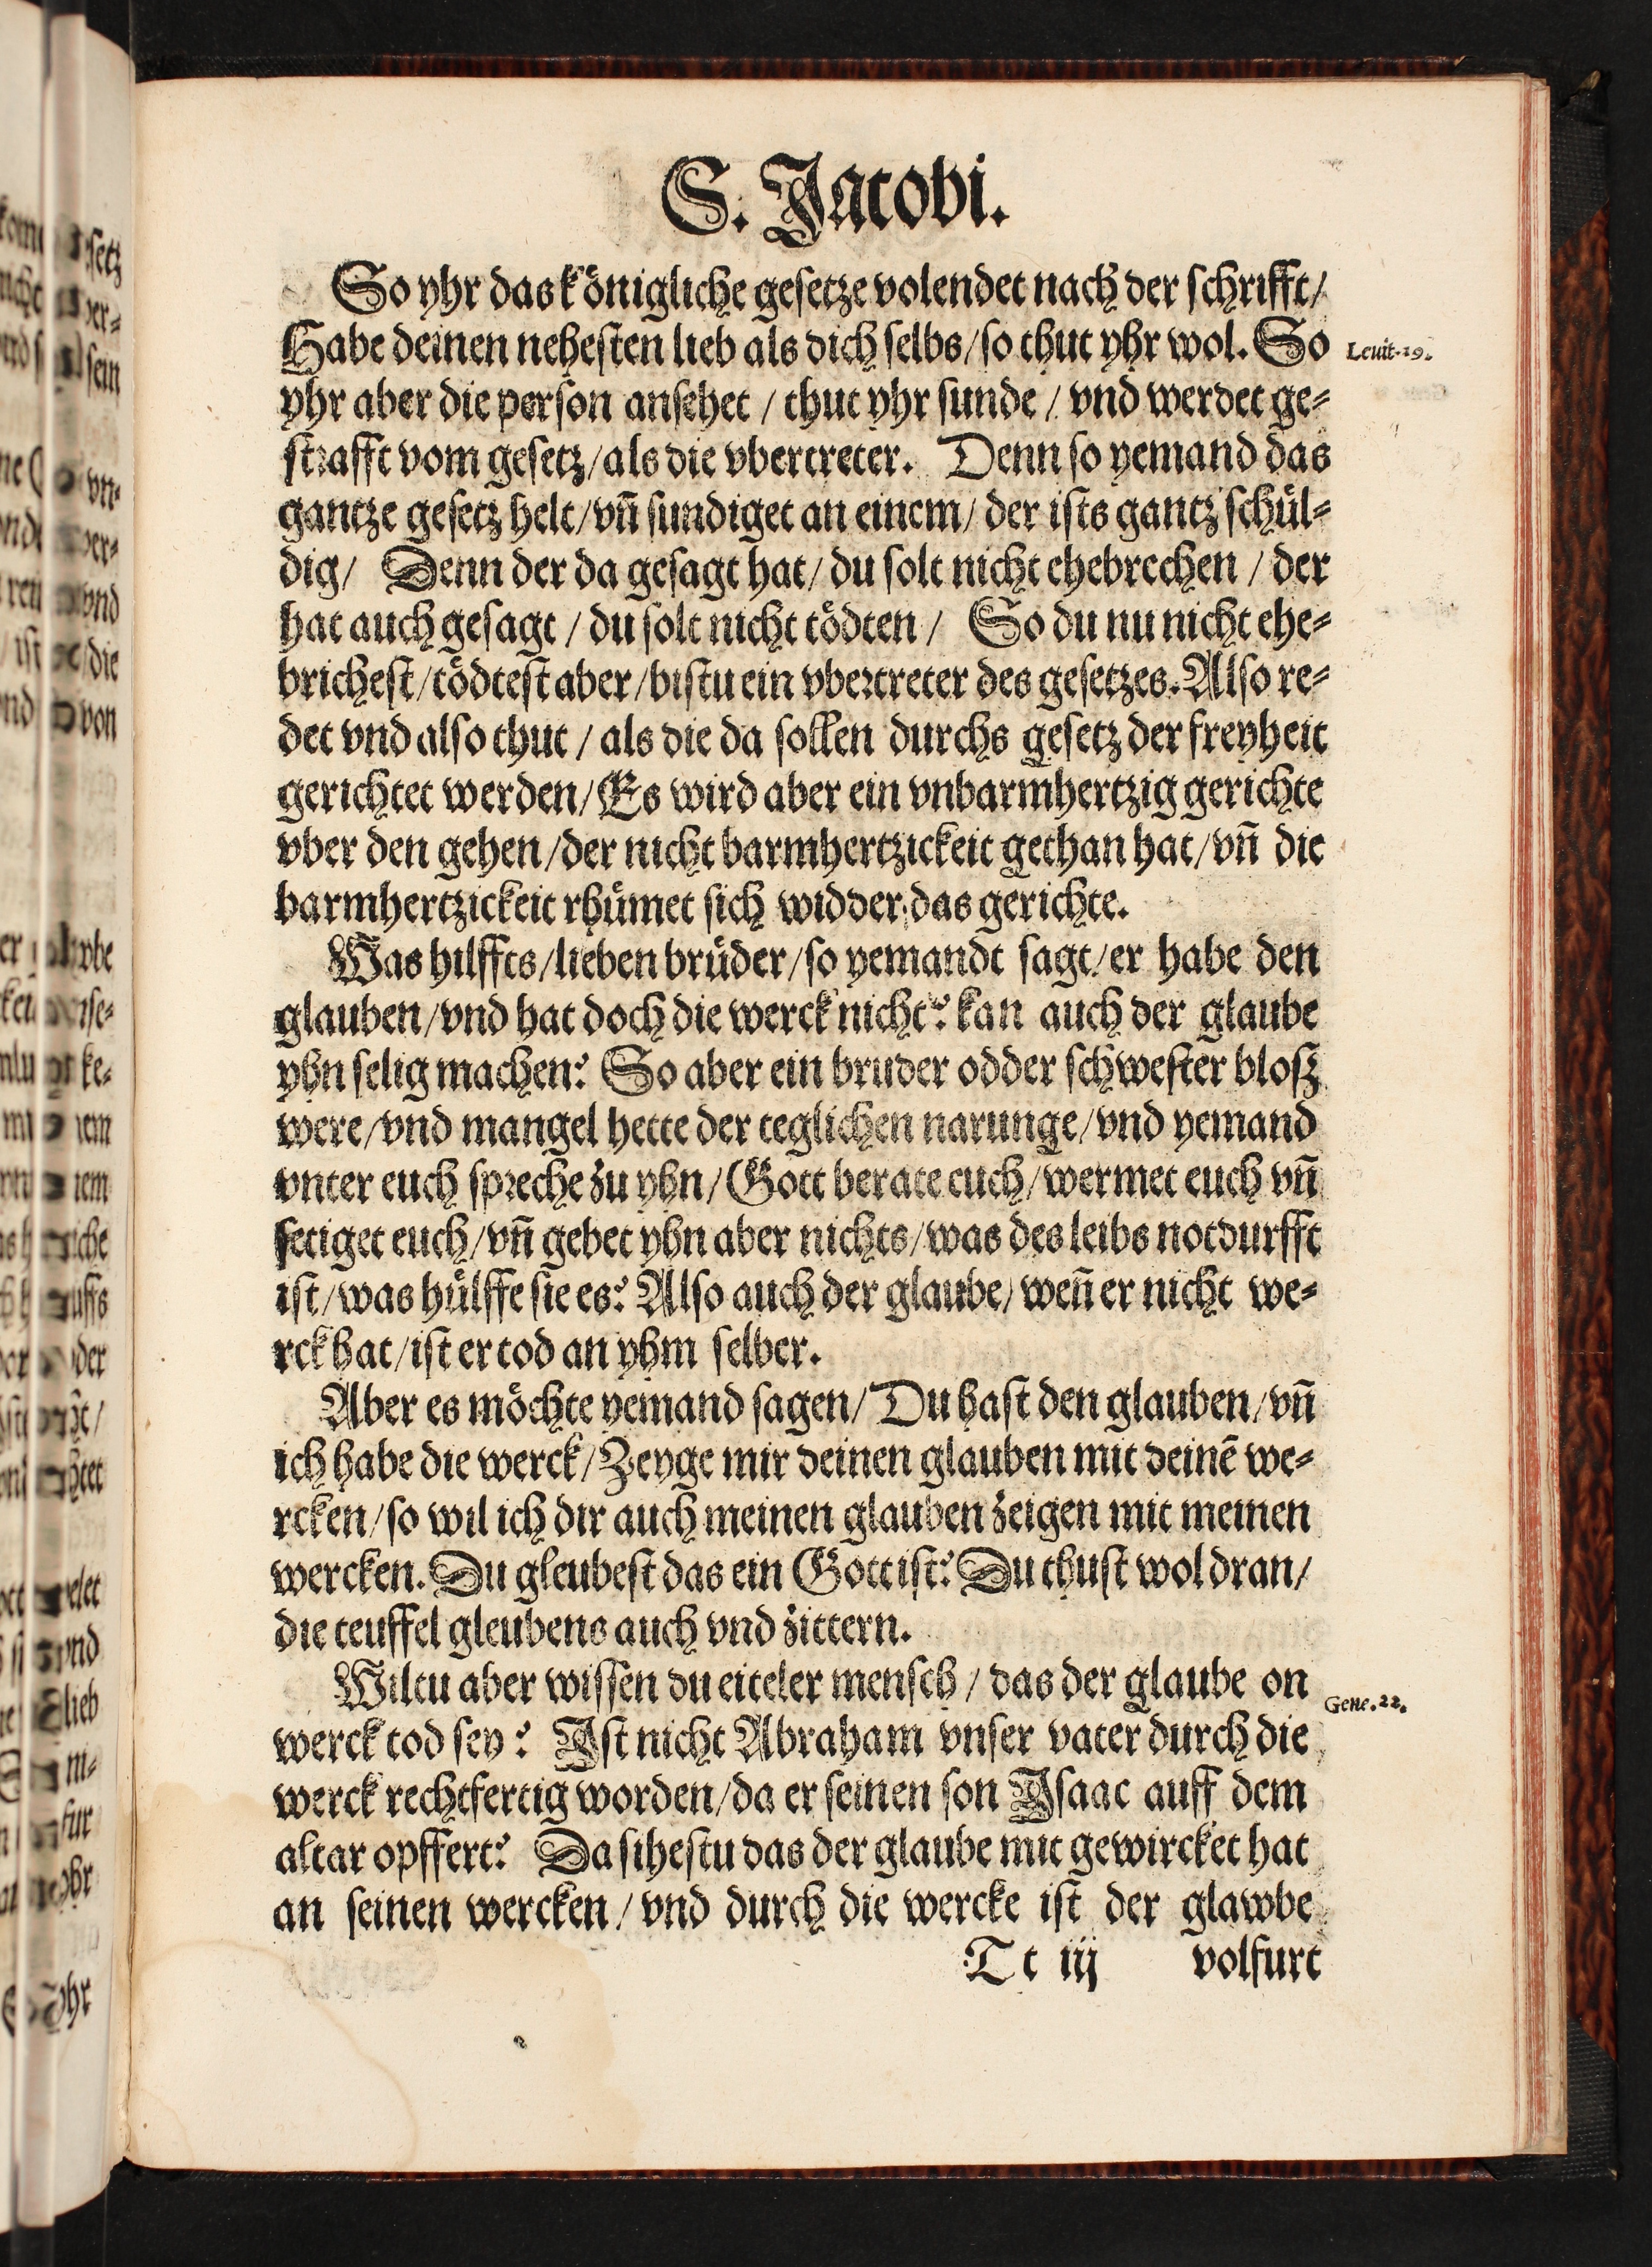 S. Jacobi.
So yhr das königliche gesetze volendet nach der schrifft/
Habe deinen nehesten lieb als dich selbs/so thut yhr wol. So
Leuit.19.
yhr aber die person ansehet / thut yhr sunde / vnd werdet ge⸗
strafft vom gesetz/als die vbertreter. Denn so yemand das
gantze gesetz helt/vn̄ sundiget an einem/ der ists gantz schül⸗
dig/ Denn der da gesagt hat/ du solt nicht ehebrechen / der
hat auch gesagt / du solt nicht tödten / So du nu nicht ehe⸗
brichest/tödtest aber/bistu ein vbertreter des gesetzes. Also re⸗
det vnd also thut / als die da sollen durchs gesetz der freyheit
gerichtet werden/Es wird aber ein vnbarmhertzig gerichte
vber den gehen/der nicht barmhertzickeit gethan hat/vn̄ die
barmhertzickeit rhümet sich widder das gerichte.
Was hilffts/lieben brüder/so yemandt sagt/er habe den
glauben/vnd hat doch die werck nicht? kan auch der glaube
yhn selig machen? So aber ein bruder odder schwester blosz
were/vnd mangel hette der teglichen narunge/vnd yemand
vnter euch spreche zu yhn/Gott berate euch/wermet euch vn̄
settiget euch/vn̄ gebet yhn aber nichts/was des leibs notdurfft
ist/was hülffe sie es? Also auch der glaube/wen̄ er nicht we⸗
rck hat/ist er tod an yhm selber.
Aber es möchte yemand sagen/Du hast den glauben/vn̄
ich habe die werck/Zeyge mir deinen glauben mit deinē we⸗
rcken/so wil ich dir auch meinen glauben zeigen mit meinen
wercken. Du gleubest das ein Gott ist? Du thust wol dran/
die teuffel gleubens auch vnd zittern.
Wiltu aber wissen du eiteler mensch / das der glaube on
Gene.22.
werck tod sey? Ist nicht Abraham vnser vater durch die
werck rechtfertig worden/da er seinen son Isaac auff dem
altar opffert? Da sihestu das der glaube mit gewircket hat
an seinen wercken / vnd durch die wercke ist der glawbe
Tt iij volfurt